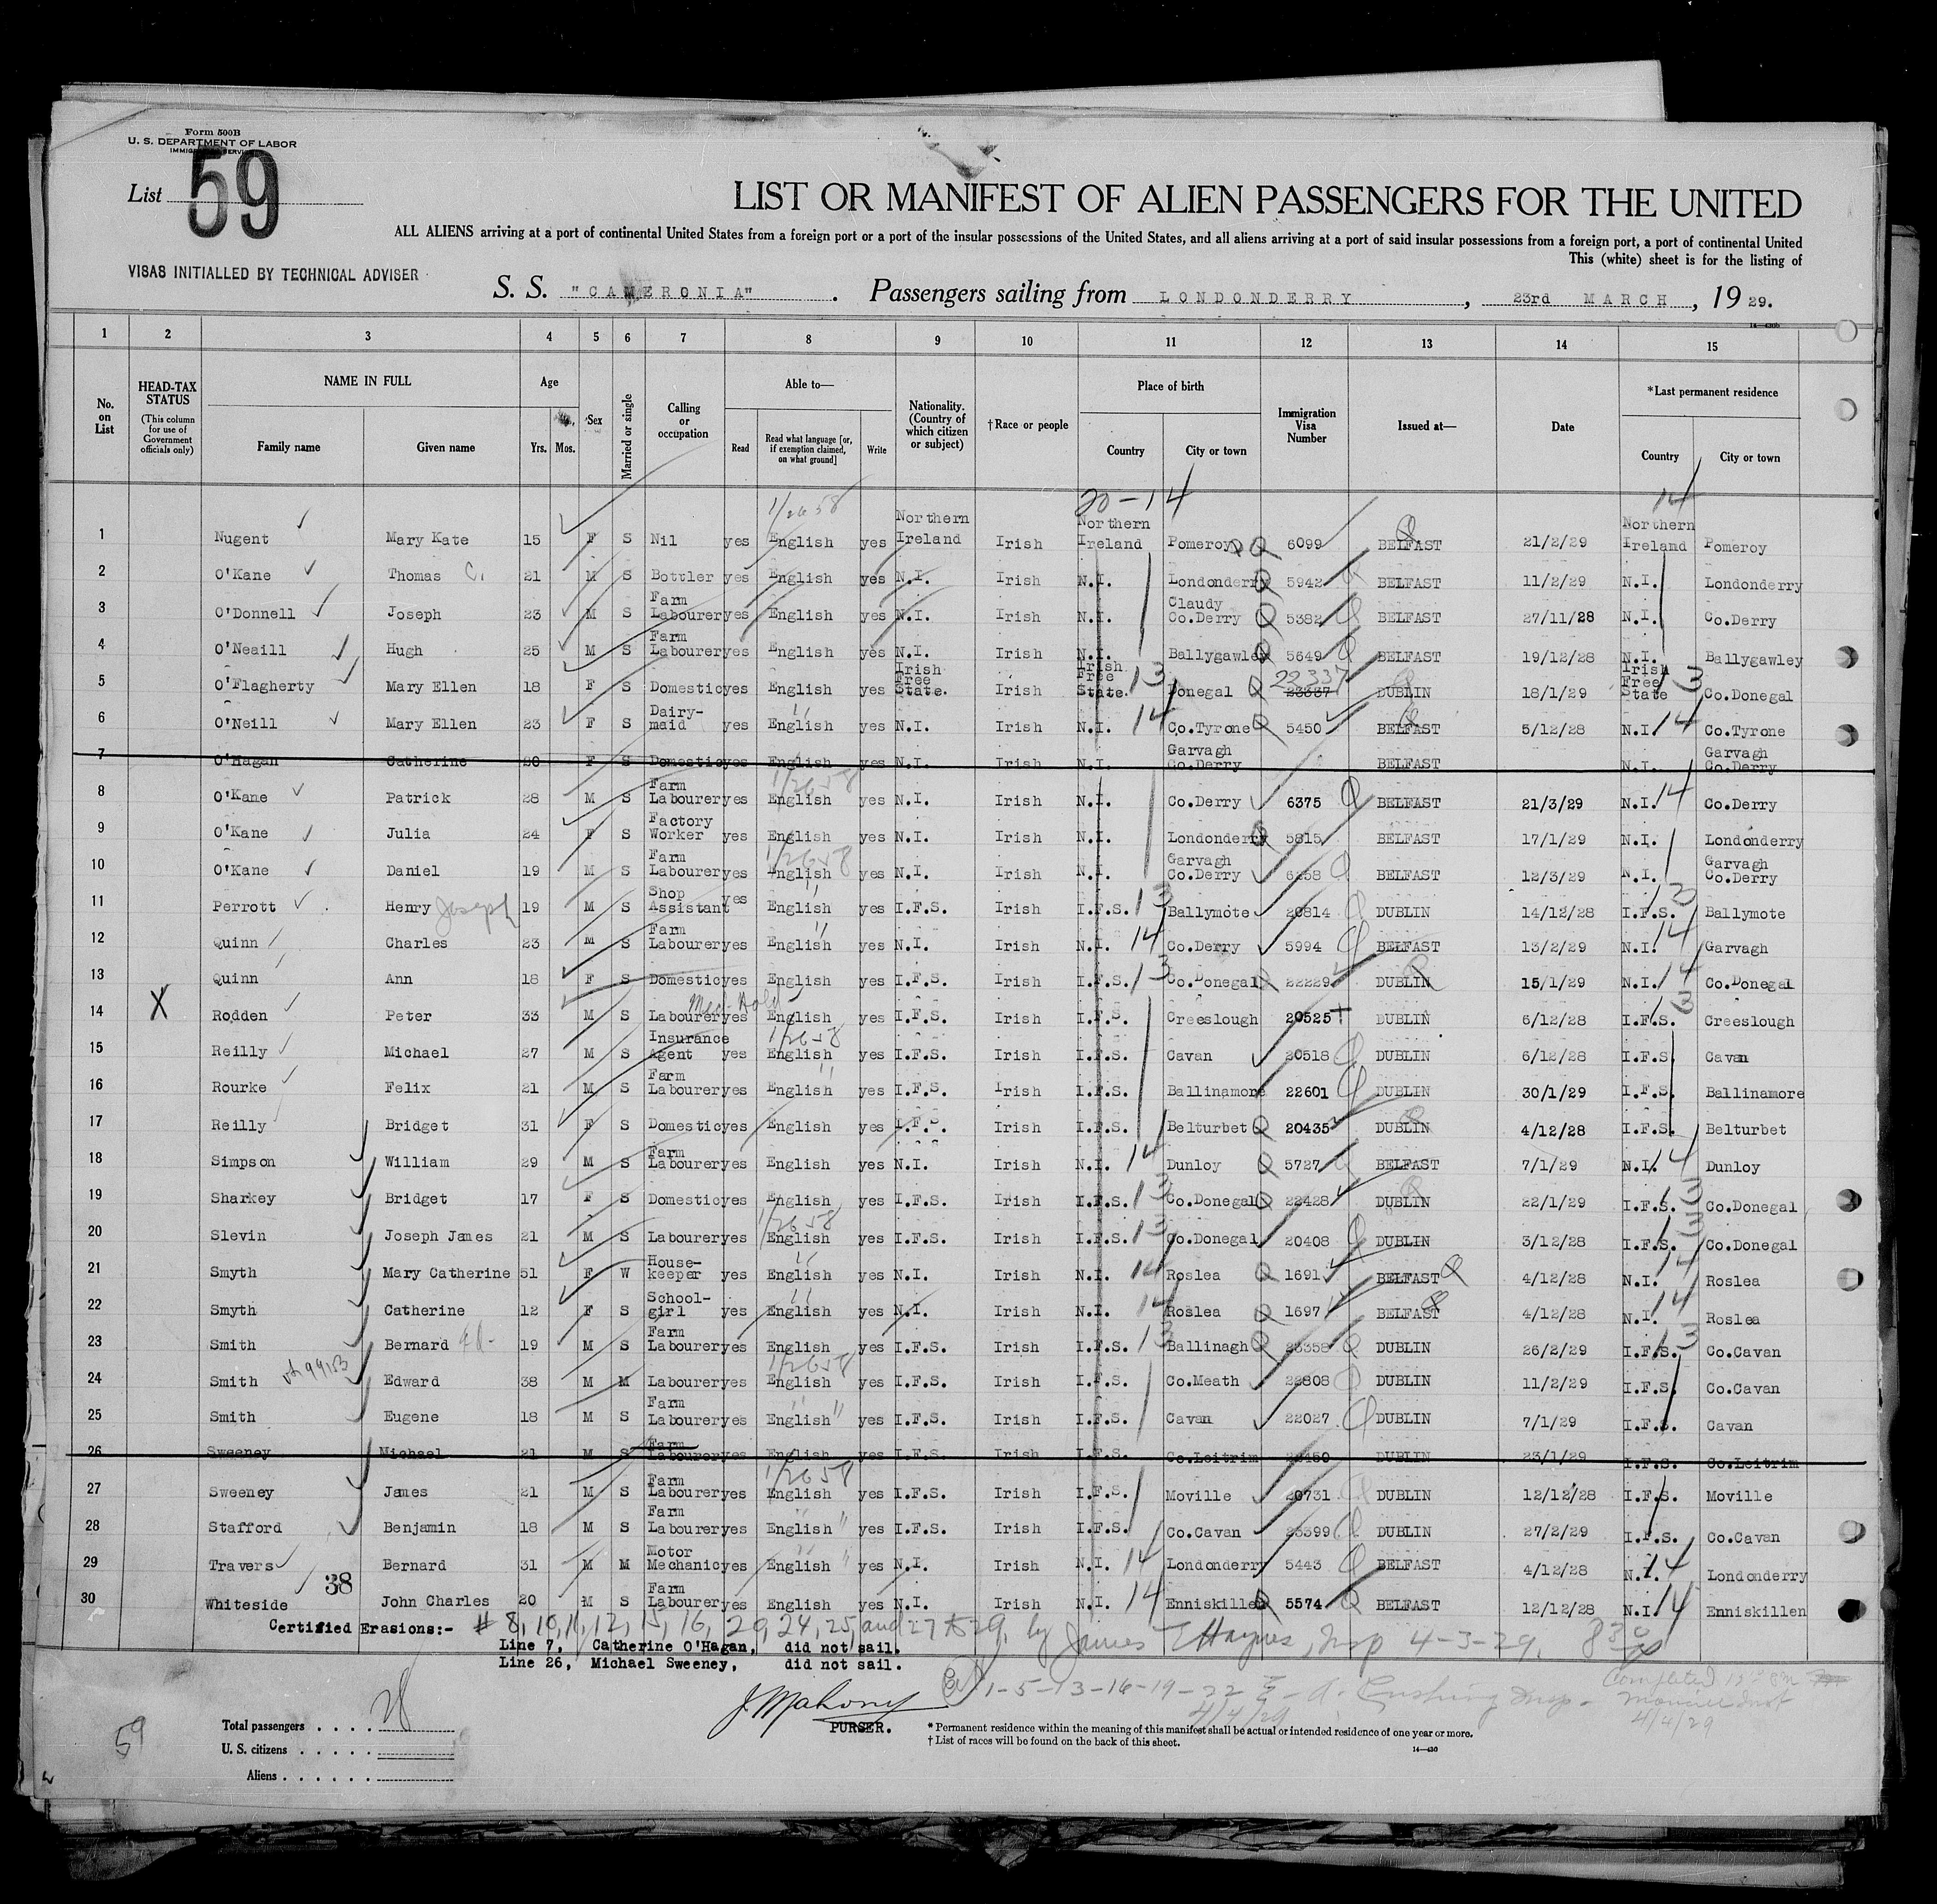 Form 500B
U. S. DEPARTMENT OF LABOR
List 59
LIST OR MANIFEST OF ALIEN PASSENGERS FOR THE UNITED
ALL ALIENS arriving at a port of continental United States from a foreign port or a port of the insular possessions of the United States, and all aliens arriving at a port of said insular possessions from a foreign port, a port of continental United
This (white) sheet is for the listing of
VISAS INITIALLED BY TECHNICAL ADVISER
S. S. "CAMERONIA" . Passengers sailing from LONDONDERRY , 23rd MARCH , 19 29.
1 2 3 4 5 6 7 8 9 10 11 12 13 14 15
No. on List
HEAD-TAX STATUS (This column for use of Government officials only)
NAME IN FULL
Family name Given name
Age Yrs. Mos.
Sex
Married or single
Calling or occupation
Able to—
Read Read what language [or, if exemption claimed, on what ground] Write
Nationality. (Country of which citizen or subject)
†Race or people
Place of birth
Country City or town
Immigration Visa Number
Issued at—
Date
*Last permanent residence
Country City or town
20-14 14
1 Nugent Mary Kate 15 F S Nil yes English yes Northern Ireland Irish Northern Ireland Pomeroy 6099 BELFAST 21/2/29 Northern Ireland Pomeroy
2 O'Kane Thomas C. 21 M S Bottler yes English yes N.I. Irish N.I. Londonderry 5942 BELFAST 11/2/29 N.I. Londonderry
3 O'Donnell Joseph 23 M S Farm Labourer yes English yes N.I. Irish N.I. Claudy Co.Derry 5382 BELFAST 27/11/28 N.I. Co.Derry
4 O'Neaill Hugh 25 M S Farm Labourer yes English yes N.I. Irish N.I. Ballygawley 5649 BELFAST 19/12/28 N.I. Ballygawley
5 O'Flagherty Mary Ellen 18 F S Domestic yes English yes Irish Free State. Irish Irish Free State. 13 Donegal 22337 23337 DUBLIN 18/1/29 Irish Free State Co.Donegal
6 O'Neill Mary Ellen 23 F S Dairy-maid yes English yes N.I. Irish N.I. 14 Co.Tyrone 5450 BELFAST 5/12/28 N.I. 14 Co.Tyrone
7 O'Hagan Catherine 20 F S Domestic yes English yes N.I. Irish N.I. Garvagh Co.Derry BELFAST N.I. Garvagh Co.Derry
8 O'Kane Patrick 28 M S Farm Labourer yes English yes N.I. Irish N.I. Co.Derry 6375 BELFAST 21/3/29 N.I. 14 Co.Derry
9 O'Kane Julia 24 F S Factory Worker yes English yes N.I. Irish N.I. Londonderry 5815 BELFAST 17/1/29 N.I. Londonderry
10 O'Kane Daniel 19 M S Farm Labourer yes English yes N.I. Irish N.I. Garvagh Co.Derry 6258 BELFAST 12/3/29 N.I. Garvagh Co.Derry
11 Perrott Henry Joseph 19 M S Shop Assistant yes English yes I.F.S. Irish I.F.S. 13 Ballymote 20814 DUBLIN 14/12/28 I.F.S. Ballymote
12 Quinn Charles 23 M S Farm Labourer yes English yes N.I. Irish N.I. 14 Co.Derry 5994 BELFAST 13/2/29 N.I. 14 Garvagh
13 Quinn Ann 18 F S Domestic yes English yes I.F.S. Irish I.F.S. 13 Co.Donegal 22229 DUBLIN 15/1/29 N.I. 14 Co.Donegal
14 X Rodden Peter 33 M S Labourer yes English yes I.F.S. Irish I.F.S. Creeslough 20525 DUBLIN 6/12/28 I.F.S. Creeslough
15 Reilly Michael 27 M S Insurance Agent yes English yes I.F.S. Irish I.F.S. Cavan 20518 DUBLIN 6/12/28 I.F.S. Cavan
16 Rourke Felix 21 M S Farm Labourer yes English yes I.F.S. Irish I.F.S. Ballinamore 22601 DUBLIN 30/1/29 I.F.S. Ballinamore
17 Reilly Bridget 31 F S Domestic yes English yes I.F.S. Irish I.F.S. Belturbet 20435 DUBLIN 4/12/28 I.F.S. Belturbet
18 Simpson William 29 M S Farm Labourer yes English yes N.I. Irish N.I. 14 Dunloy 5727 BELFAST 7/1/29 N.I. 14 Dunloy
19 Sharkey Bridget 17 F S Domestic yes English yes I.F.S. Irish I.F.S. 13 Co.Donegal 22428 DUBLIN 22/1/29 I.F.S. Co.Donegal
20 Slevin Joseph James 21 M S Labourer yes English yes I.F.S. Irish I.F.S. 13 Co.Donegal 20408 DUBLIN 3/12/28 I.F.S. Co.Donegal
21 Smyth Mary Catherine 51 F W House-keeper yes English yes N.I. Irish N.I. 14 Roslea 1691 BELFAST 4/12/28 N.I. 14 Roslea
22 Smyth Catherine 12 F S School-girl yes English yes N.I. Irish N.I. 14 Roslea 1697 BELFAST 4/12/28 N.I. 14 Roslea
23 Smith Bernard 19 M S Farm Labourer yes English yes I.F.S. Irish I.F.S. 13 Ballinagh 23358 DUBLIN 26/2/29 I.F.S. Co.Cavan
24 Smith Edward 38 M M Labourer yes English yes I.F.S. Irish I.F.S. Co.Meath 22808 DUBLIN 11/2/29 I.F.S. Co.Cavan
25 Smith Eugene 18 M S Farm Labourer yes English yes I.F.S. Irish I.F.S. Cavan 22027 DUBLIN 7/1/29 I.F.S. Cavan
26 Sweeney Michael 21 M S Farm Labourer yes English yes I.F.S. Irish I.F.S. Co.Leitrim DUBLIN 23/1/29 I.F.S. Co.Leitrim
27 Sweeney James 21 M S Farm Labourer yes English yes I.F.S. Irish I.F.S. Moville 20731 DUBLIN 12/12/28 I.F.S. Moville
28 Stafford Benjamin 18 M S Farm Labourer yes English yes I.F.S. Irish I.F.S. Co.Cavan 23399 DUBLIN 27/2/29 I.F.S. Co.Cavan
29 Travers Bernard 31 M M Motor Mechanic yes English yes N.I. Irish N.I. 14 Londonderry 5443 BELFAST 4/12/28 N.I. 14 Londonderry
30 Whiteside 38 John Charles 20 M S Farm Labourer yes English yes N.I. Irish N.I. 14 Enniskillen 5574 BELFAST 12/12/28 N.I. 14 Enniskillen
Certified Erasions:- # 8, 10, 11, 12, 15, 16, 20, 24, 25, and 27 to 29, by James Haynes, Insp 4-3-29.
Line 7, Catherine O'Hagan, did not sail.
Line 26, Michael Sweeney, did not sail.
J Mahony
PURSER.
1-5-13-16-19-22
4/4/29
4/4/29
59
Total passengers . . . . 28
U. S. citizens . . . . .
Aliens . . . . . .
* Permanent residence within the meaning of this manifest shall be actual or intended residence of one year or more.
† List of races will be found on the back of this sheet.
14—430